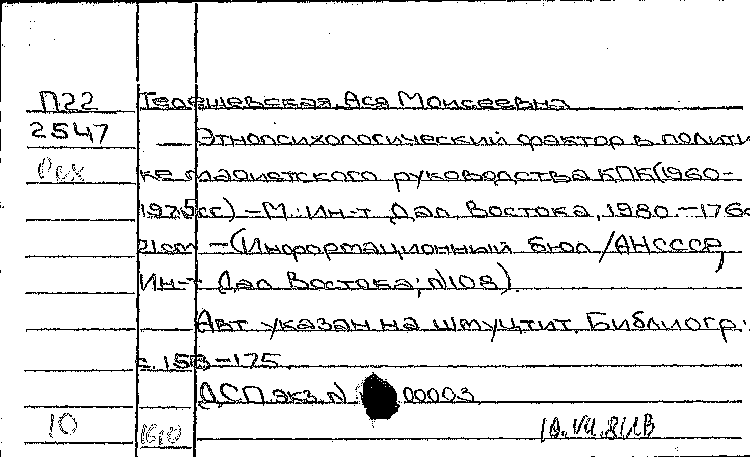 П22 Терешевская, Ася Моисеевна
2547 Этнопсихологический фактор в полити
ке маоистского руководства КПК(1960-
1975гг) – М: Ин-т Дал. Востока, 1980. – 176с
21см – (Информационный бюл /АНСССР,
Ин-т Дал Востока; №108).
Авт указан на шмуцтит. Библиогр.:
с.158-175.
ДСП экз. N 00003
10 10.VII.81